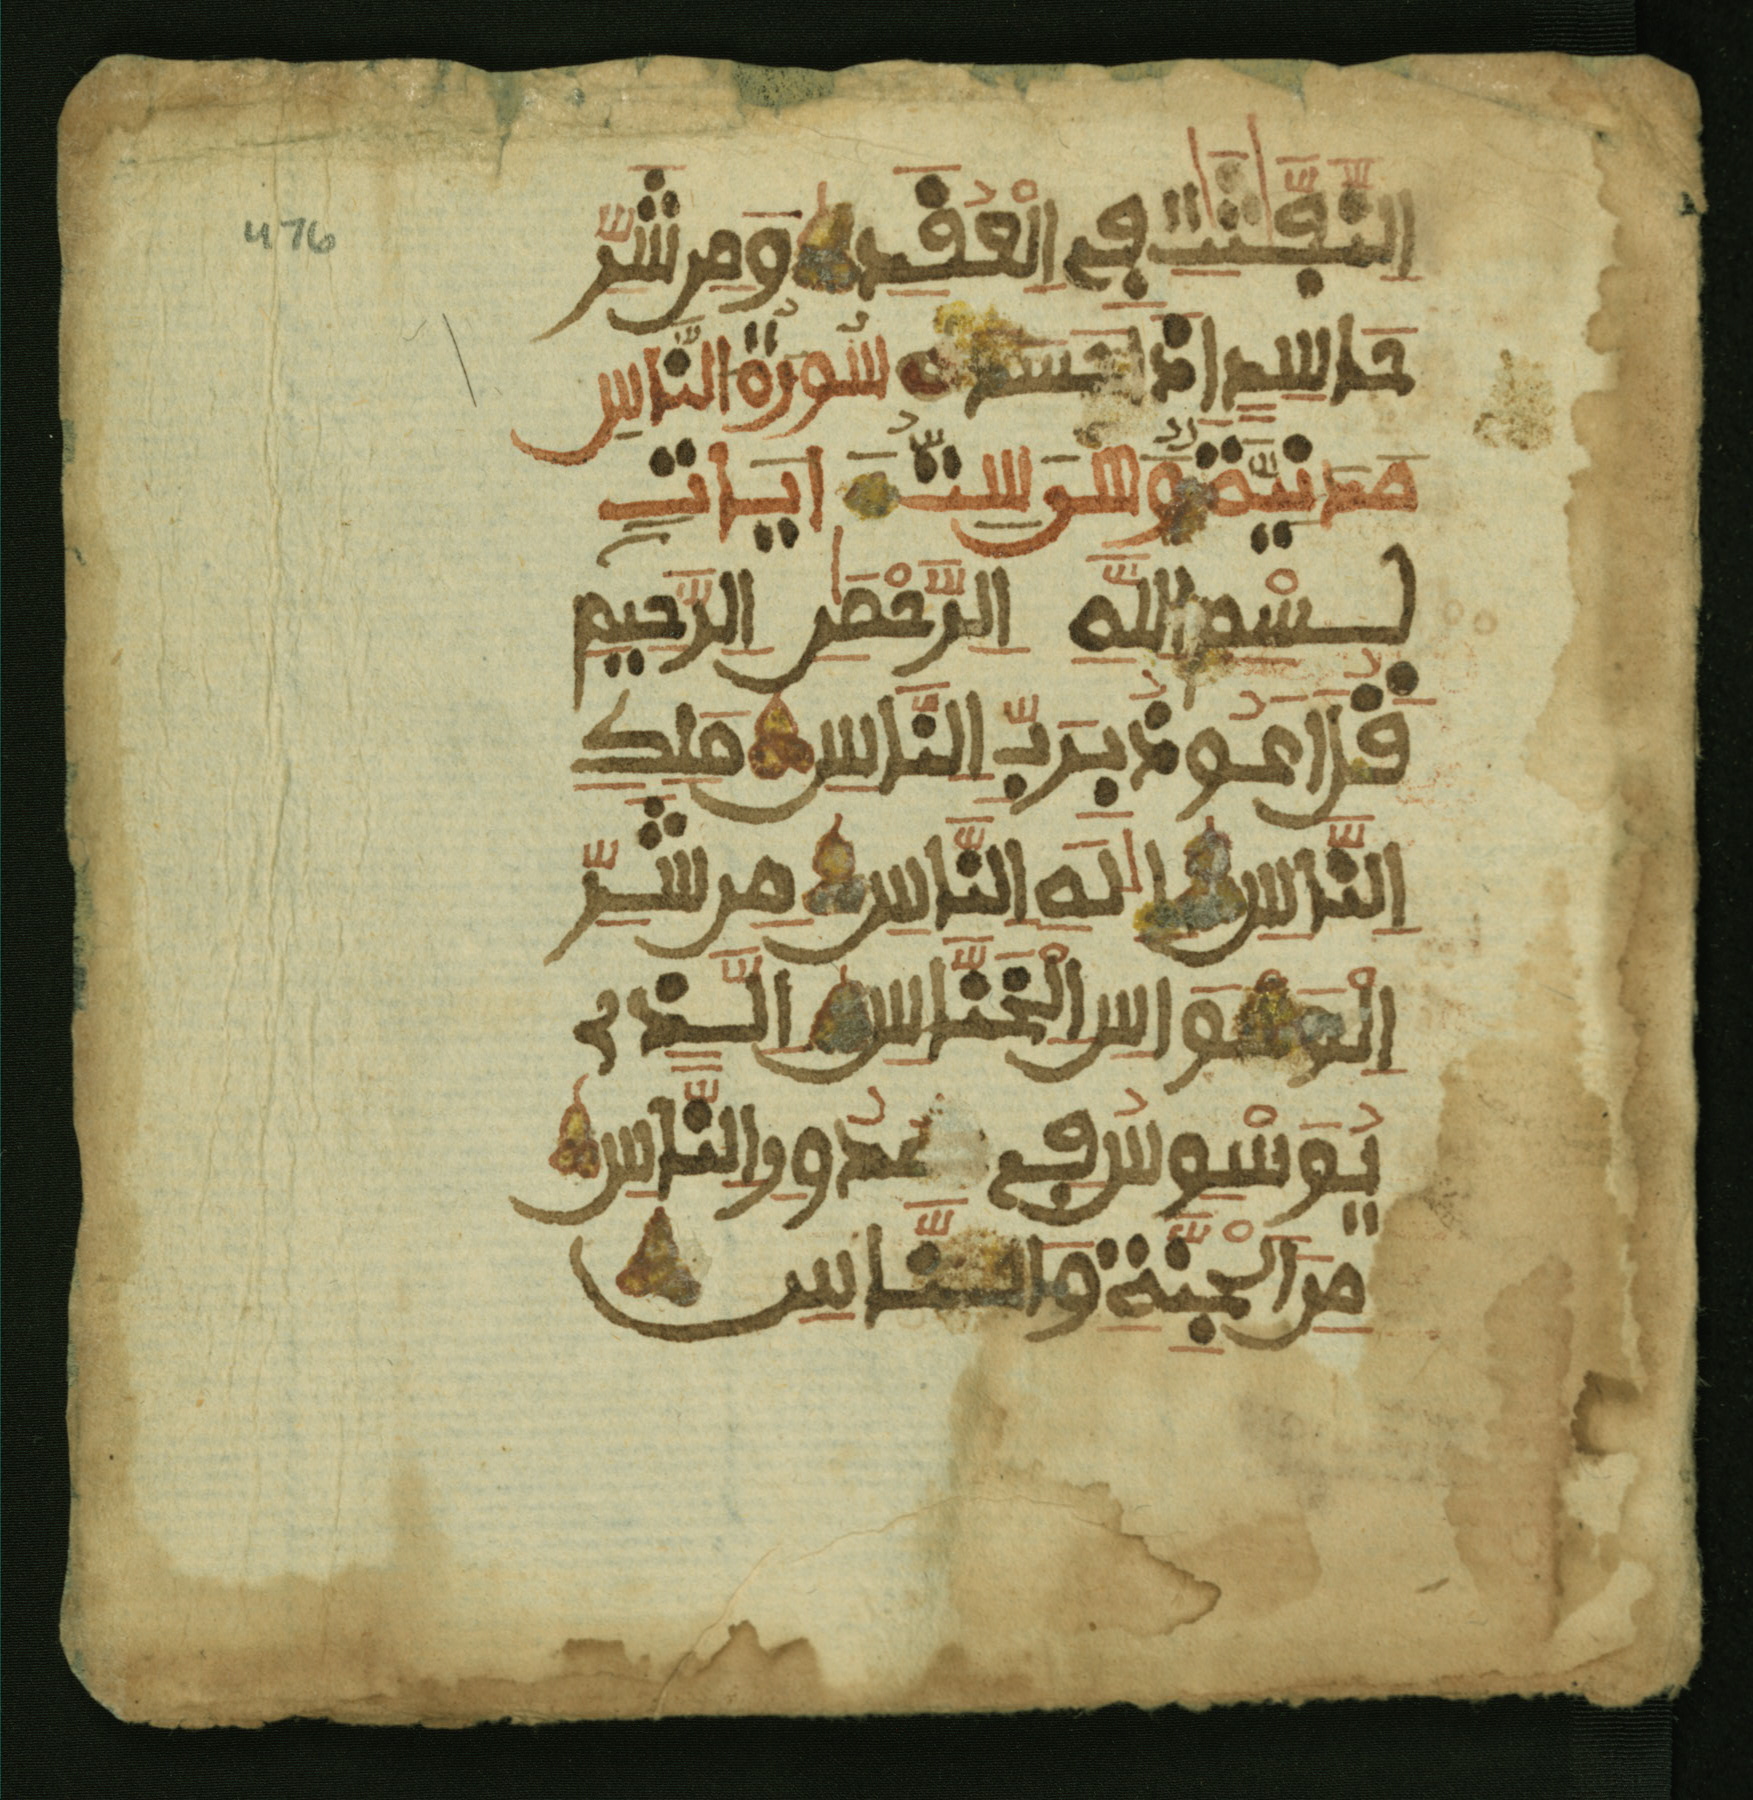 476
النَّفَّٰثَٰتِ فِي الْعُقَدِ وَمِن شَرِّ
حَاسِدٍ إِذَا حَسَدَ سُورَةُ النَّاسِ
مَدَنِيَّةٌ وَهِيَ سِتُّ ايَاتٍ
بِسْمِ اللَّهِ الرَّحْمَٰنِ الرَّحِيمِ
قُلَ اعُوذُ بِرَبِّ النَّاسِ مَلِكِ
النَّاسِ إِلَٰهِ النَّاسِ مِن شَرِّ
الْوَسْوَاسِ الْخَنَّاسِ الَّذِي
يُوَسْوِسُ فِي صُدُورِ النَّاسِ
مِنَ الْجِنَّةِ وَالنَّاسِ